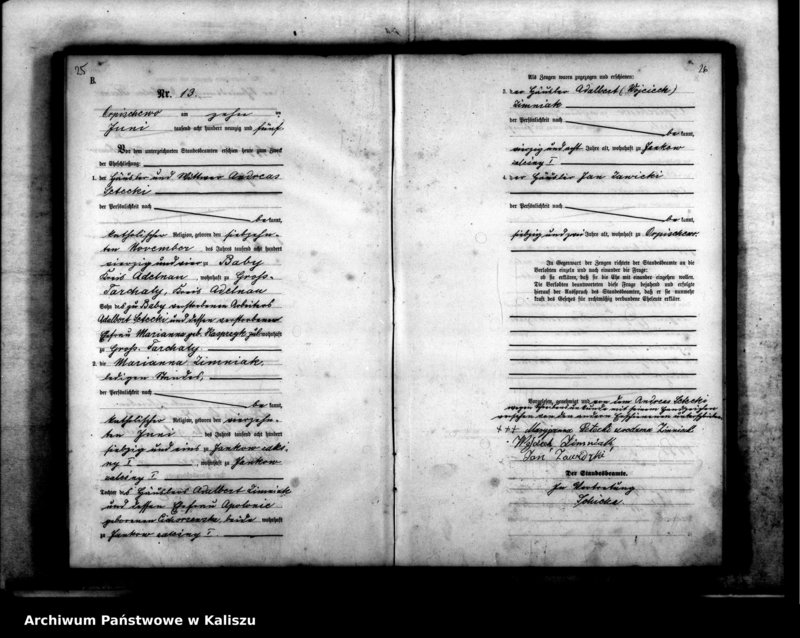 25
B.
Nr. 13.
am zehn
Juni tausend acht hundert neunzig und fünf
Vor dem unterzeichneten Standesbeamten erschien heute zum Zweck
der Eheschließung:
1. der Häusler und Wittwer Andreas
Setecki
der Persönlichkeit nach
be kannt,
katholischer Religion, geboren den siebzehn-
ten November des Jahres tausend acht hundert
vierzig und vier zu Baby
Kreis Adelnau, wohnhaft zu Gross-
Tarchaly, Kreis Adelnau
Sohn des zu Baby verstorbenen Arbeiters
Adalbert Setecki und dessen verstorbenen
Ehefrau Marianna geb. Kasprzyk wohnhaft
zu Gross-Tarchaly.
2. die Marianna Zimniak,
ledigen Standes,
der Persönlichkeit nach
be kannt,
katholischer Religion, geboren den
ten Juni des Jahres tausend acht hundert
siebzig und eins zu Jankow zales-
ny I, wohnhaft zu Jankow
zalesny I
Tochter des Häuslers Adalbert Zimniak
und dessen Ehefrau Apolonie
geborenen beide wohnhaft
zu Jankow zalesny I.
26
Als Zeugen waren zugezogen und erschienen:
3. der Häusler Adalbert (Wojciech)
Zimniak
der Persönlichkeit nach
be kannt,
vierzig und acht Jahre alt, wohnhaft zu Jankow
zalesny I
4. der Häusler Jan Zawicki
der Persönlichkeit nach
be kannt,
siebzig und zwei Jahre alt, wohnhaft zu
In Gegenwart der Zeugen richtete der Standesbeamte an die
Verlobten einzeln und nach einander die Frage:
ob sie erklären, daß sie die Ehe mit einander eingehen wollen.
Die Verlobten beantworteten diese Frage bejahend und erfolgte
hierauf der Ausspruch des Standesbeamten, daß er sie nunmehr
kraft des Gesetzes für rechtmäßig verbundene Eheleute erkläre.
Vorgelesen, genehmigt und von dem Andreas Setecki
wegen mit seinem Handzeichen
versehen von den anderen
+++ Maryanna Setecki
Wojciech Zimniak
Jan
Der Standesbeamte.
In Vertretung
Archiwum Państwowe w Kaliszu